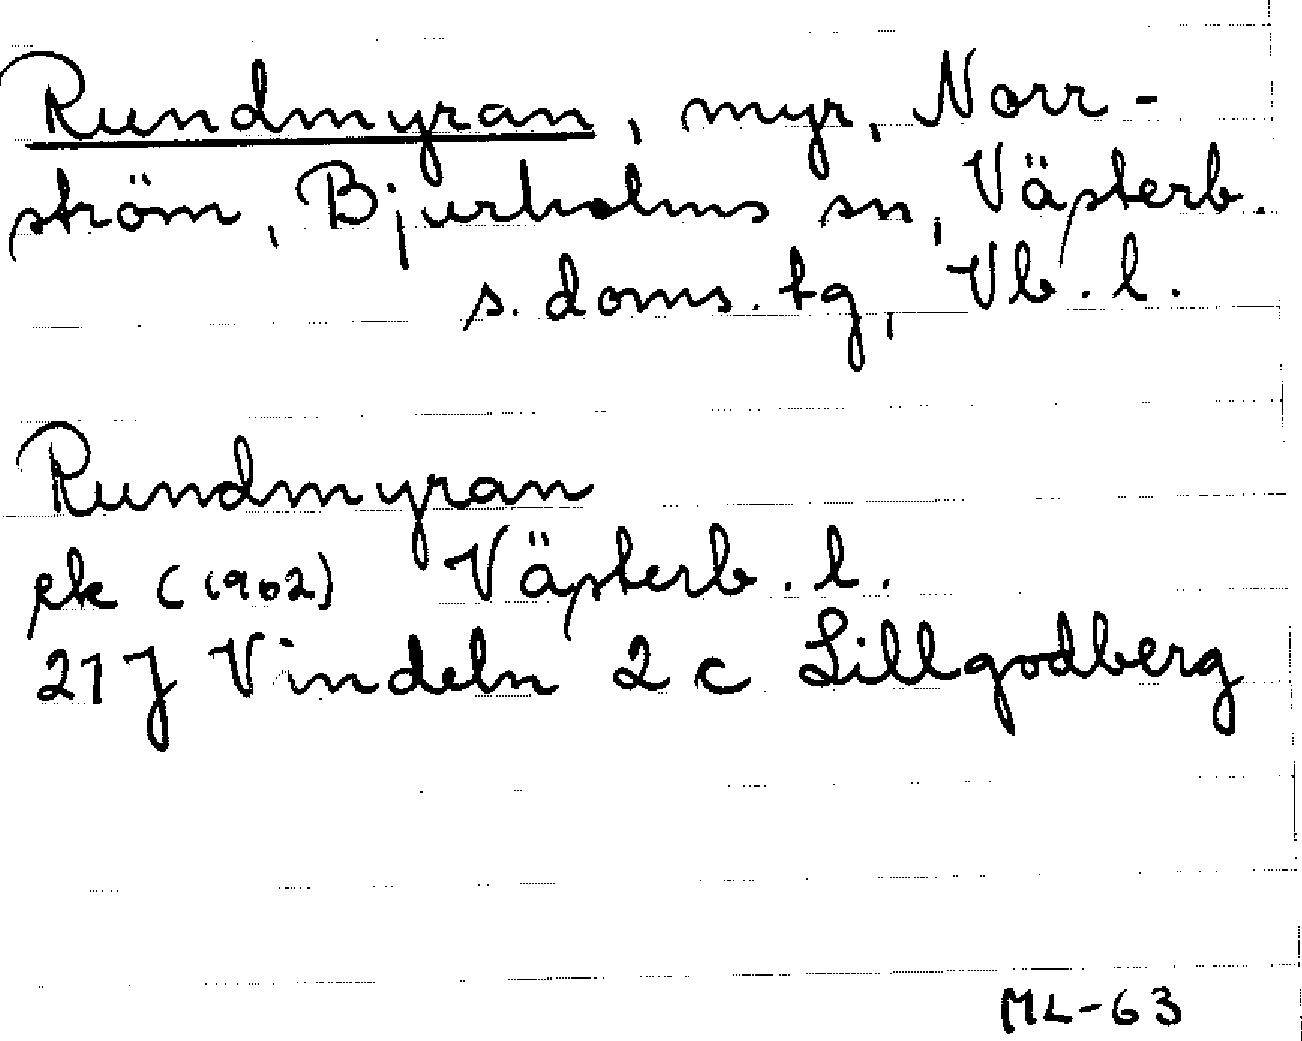 Rundmyran, myr, Norr-
ström, Bjurholms sn, Västerb.
s. doms. tg, Vb. l.
Rundmyran
ek (1962) Västerb. l.
21 J Vindeln 2 c Lillgodberg
ML-63